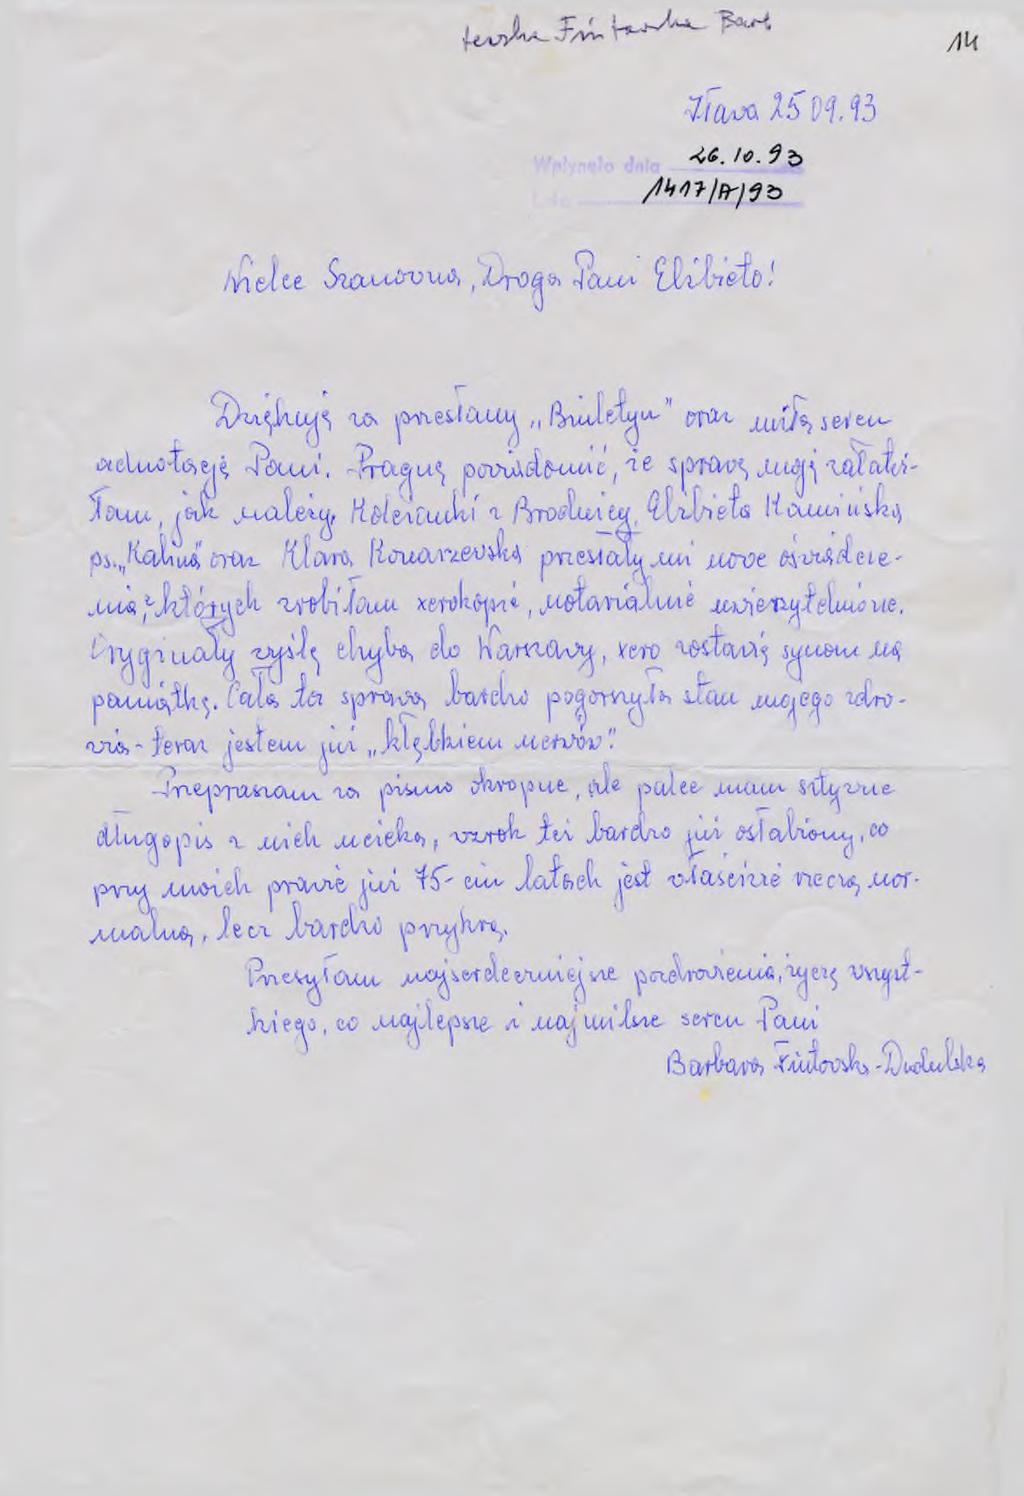 teczka Fintowska Barb
14
Iława 25 09. 93
Wpłynęło dnia 26.10.93
1417/A/93
Wielce Szanowna, Droga Pani Elżbieto!
Dziękuję za przesłany „Biuletyn" oraz miłą sercu
adnotację Pani. Pragnę powiadomić, że sprawę moją załatwi-
łam, jak należy. Koleżanki z Brodnicy, Elżbieta Kamińska
ps. „Kalina" oraz Klara Konarzewska przesłały mi nowe oświadcze-
nia, z których zrobiłam xerokopie, notarialnie uwierzytelnione.
Oryginały wyślę chyba do Warszawy, xero zostawię synom na
pamiątkę. Cała ta sprawa bardzo pogorszyła stan mojego zdro-
wia - teraz jestem już „kłębkiem nerwów".
Przepraszam za pismo okropne, ale palce mam sztywne
długopis z nich ucieka, wzrok też bardzo już osłabiony, co
przy moich prawie już 75-ciu latach jest właściwie rzeczą nor-
malną, lecz bardzo przykrą.
Przesyłam najserdeczniejsze pozdrowienia, życzę wszyst-
kiego, co najlepsze i najmilsze sercu Pani
Barbara Fintowska-Dudulska